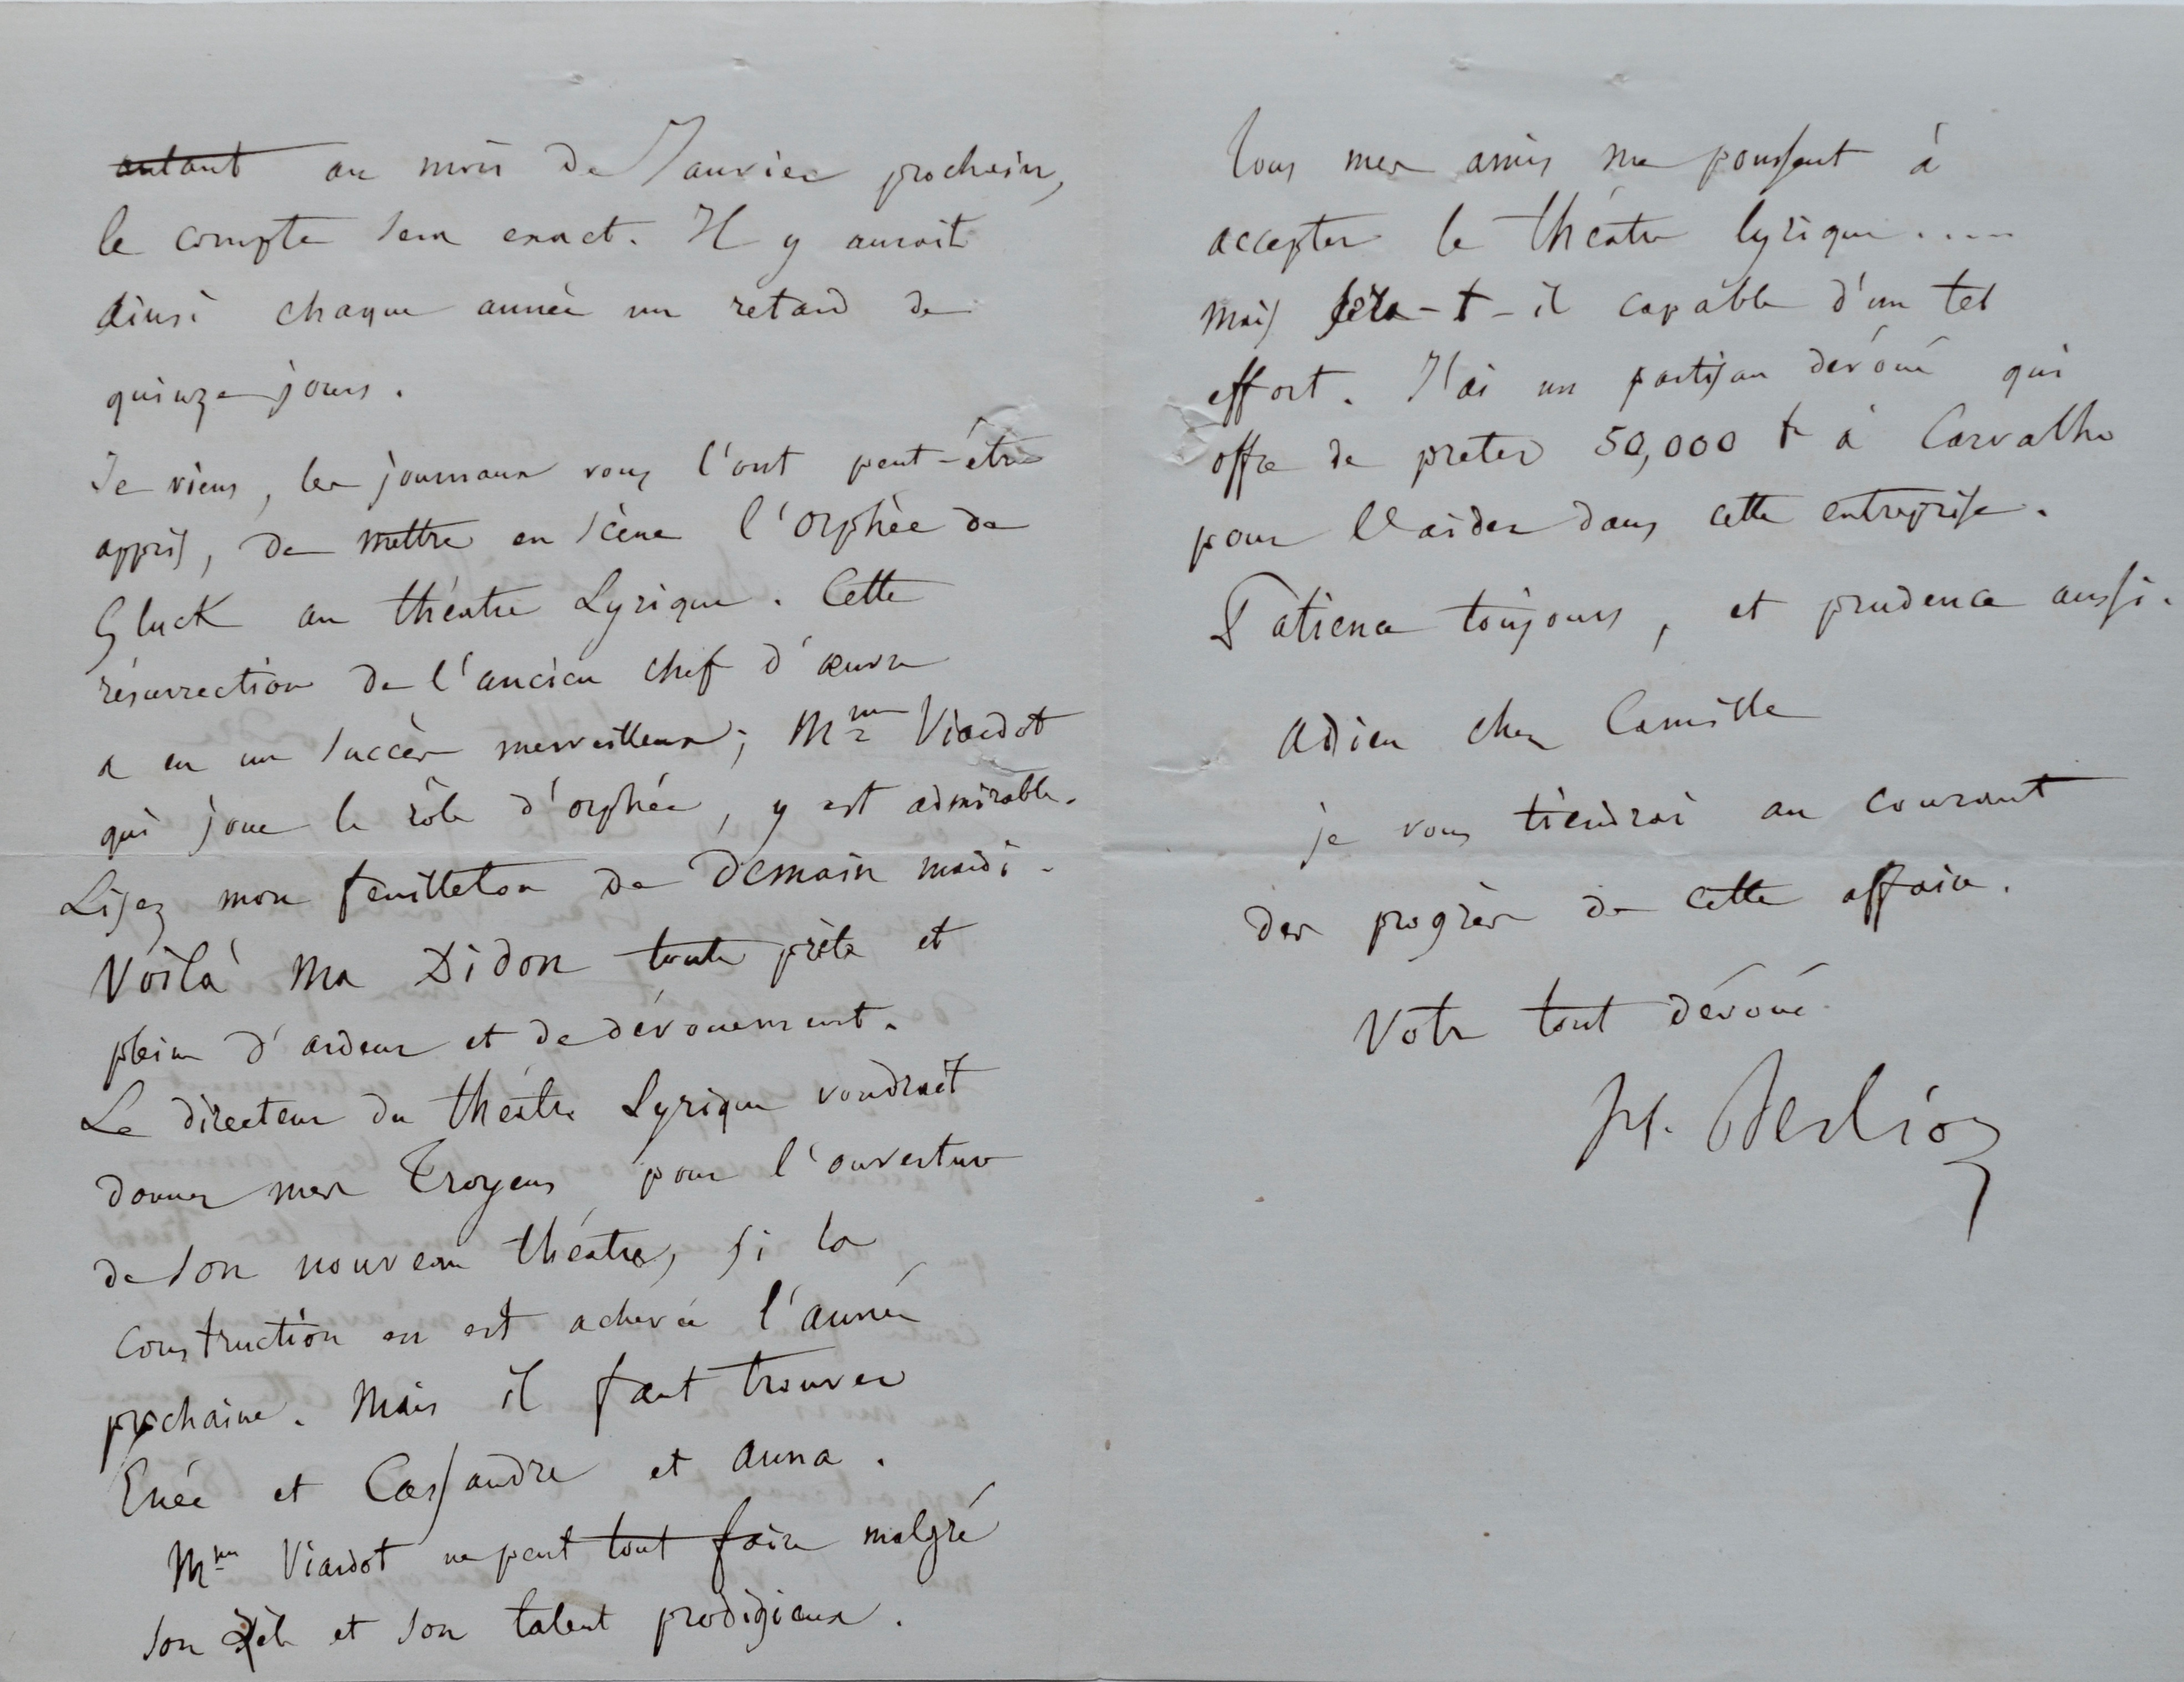 autant au mois de Janvier prochain,
le compte sera exact. Il y aurait
ainsi chaque année un retard de
quinze jours.
Je viens, les journaux vous l'ont peut-être
appris, de mettre en scène l'Orphée de
Gluck au théatre Lyrique. Cette
résurrection de l'ancien chef d'œuvre
a eu un succès merveilleux; Mme Viardot
qui joue le rôle d'orphée, y est admirable.
Lisez mon feuilleton de Demain mardi.
Voilà ma Didon toute prête et
pleine d'ardeur et de dévouement.
Le directeur du théatre Lyrique voudrait
donner mes Troyens pour l'ouverture
de son nouveau théatre, si la
construction en est achevée l'année
prochaine. Mais il faut trouver
Enée et Cassandre et Anna.
Mme Viardot ne peut tout faire malgré
son zèle et son talent prodigieux.
Tous mes amis me poussent à
accepter le théatre lyrique.....
Mais sera-t-il capable d'un tel
effort. J'ai un partisan dévoué qui
offre de preter 50,000 f à Carvalho
pour l'aider dans cette entreprise.
Patience toujours, et prudence aussi.
Adieu cher Camille
je vous tiendrai au courant
des progrès de cette affaire.
Votre tout dévoué
H. Berlioz